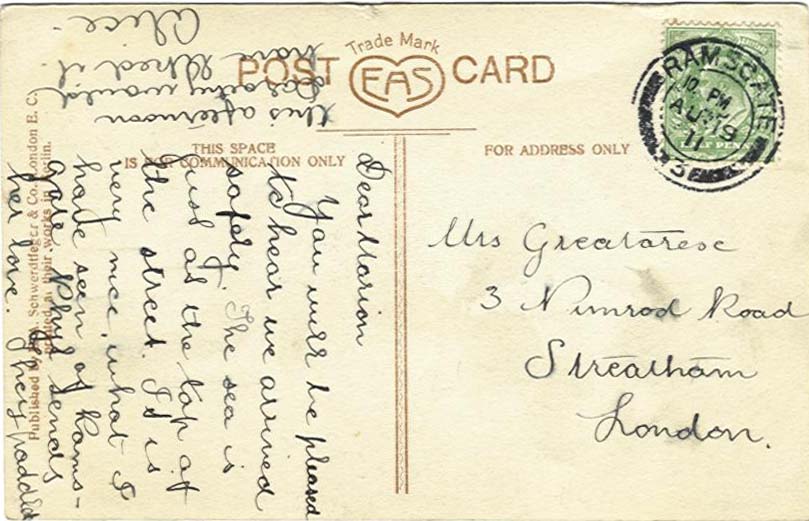 Trade Mark
POST EAS CARD
THIS SPACE
IS FOR COMMUNICATION ONLY
FOR ADDRESS ONLY
RAMSGATE
10 PM
AU 19
11
HALF PENNY
Published by E. A. Schwerdtfeger & Co., London E. C.
Printed at their works in Berlin.
Dear Marion
You will be pleased
to hear we arrived
safely. The sea is
just at the top of
the street. It is
very nice, what I
have seen of Rams-
gate. Phyl sends
her love. They paddled
this afternoon
Darseny would
have liked it.
Alice.
Mrs Greatarese
3 Nimrod Road
Streatham
London.